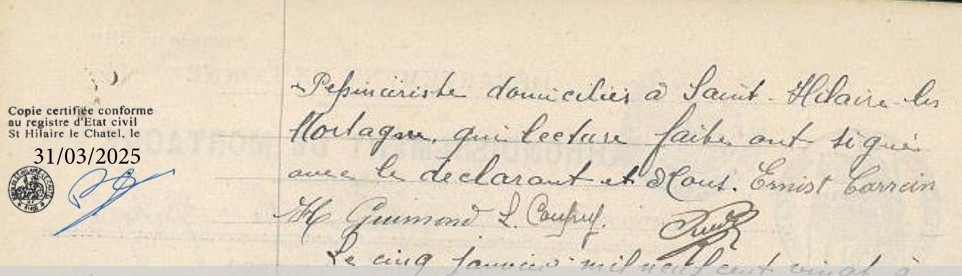 Copie certifiée conforme
au registre d'Etat civil
St Hilaire le Chatel, le
31/03/2025
Pepinieriste domiciliés à Saint-Hilaire les
Mortagne, qui lecture faite ont signé
avec le déclarant et Nous. Ernist
H Guimond L.
Le cinq janvier mil neuf cent vingt à